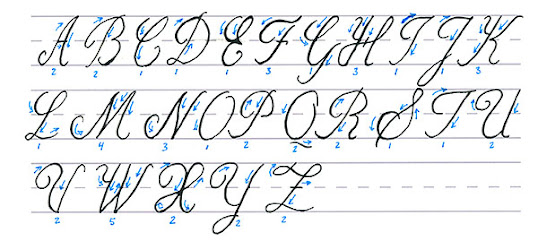 A B C D E F G H I J K
2 2 1 1 1 3 1 3 1 1 3
L M N O P Q R S T U
1 4 3 1 2 2 2 1 1 2
V W X Y Z
2 5 2 2 2